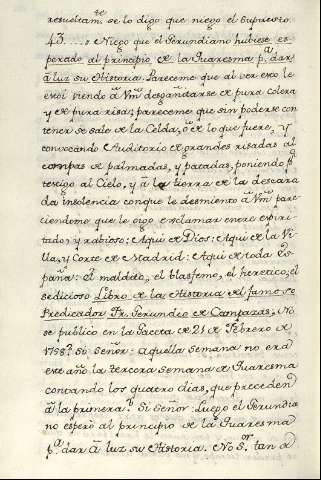 resueltamte. se lo digo que niego el supuesto.
43....o Niego que el Gerundiano hubiese es-
perado al principio de la Quaresma pa. dar
a luz su Historia. Pareceme que al ver esto le
estoi viendo a Vm̃ desgañitarse de pura colera
y de pura risa; pareceme que sin poderse con-
tener se sale de la Celda, o de lo que fuere, y
convocando Auditorio de grandes risadas al
compas de palmadas, y patadas, poniendo pr.
testigo al Cielo, y a la tierra de la descara-
da insolencia conque le desmiento a Vm̃ pare-
ciendome que le oigo exclamar entre espiri-
tado, y rabioso: Aqui de Dios: Aqui de la Vi-
lla, y Corte de Madrid: Aqui de toda Es-
paña: El maldeto, el blasfemo, el heretico, el
sedicioso Libro de la Historia del famoso
Predicador Fr. Gerundio de Campazas, No
se publicò en la Gaceta de 21 de Febrero de
1758? Si Señor: aquella semana no era
este año la tercera semana de Quaresma
contando los quatro dias, que preceden
a la primera? Si Señor: Luego el Gerundia
no esperò al principio de la Quaresma
pa. dar a luz su Historia. No Sor. tan de